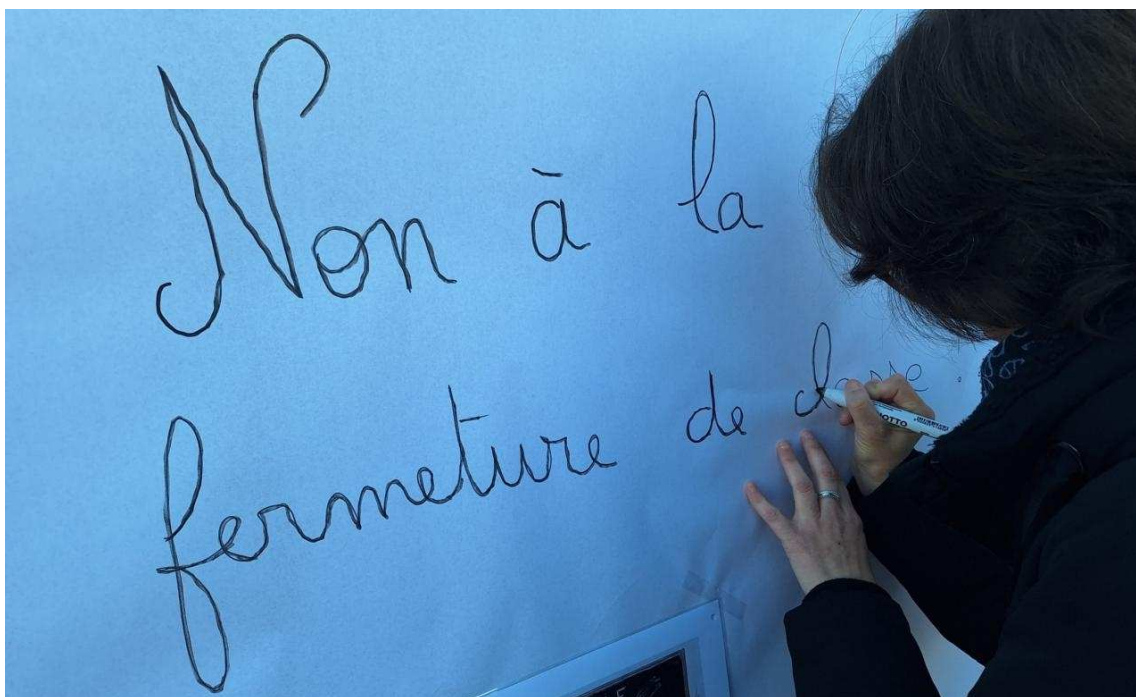 Non à la
fermeture de classe
OTTO